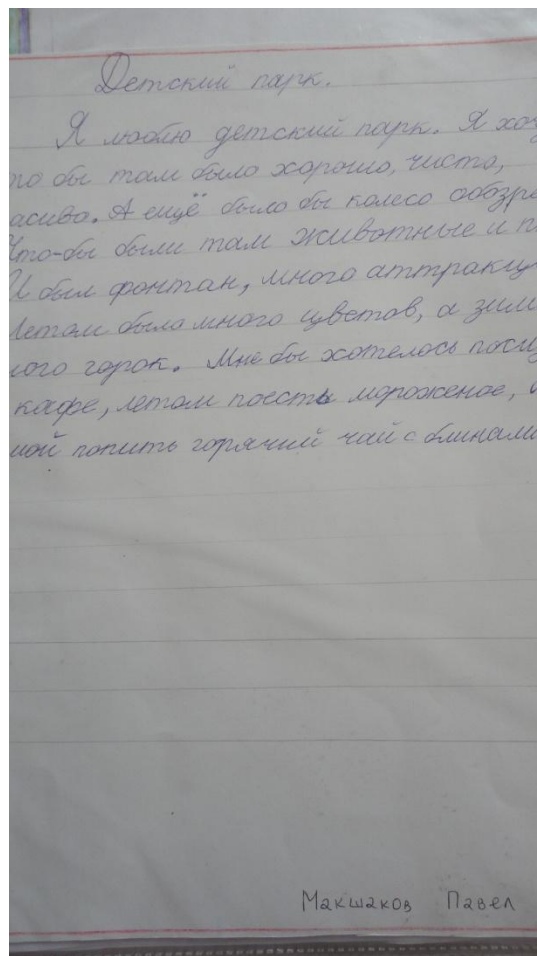 Детский парк.
Я люблю детский парк. Я хоч
то бы там было хорошо, чисто,
асиво. А ещё было бы колесо обозре
Что-бы были там животные и п
И был фонтан, много аттракц
Летом было много цветов, а зим
ного горок. Мне бы хотелось посид
кафе, летом поесть мороженое,
мой попить горячий чай с блинами
Макшаков Павел